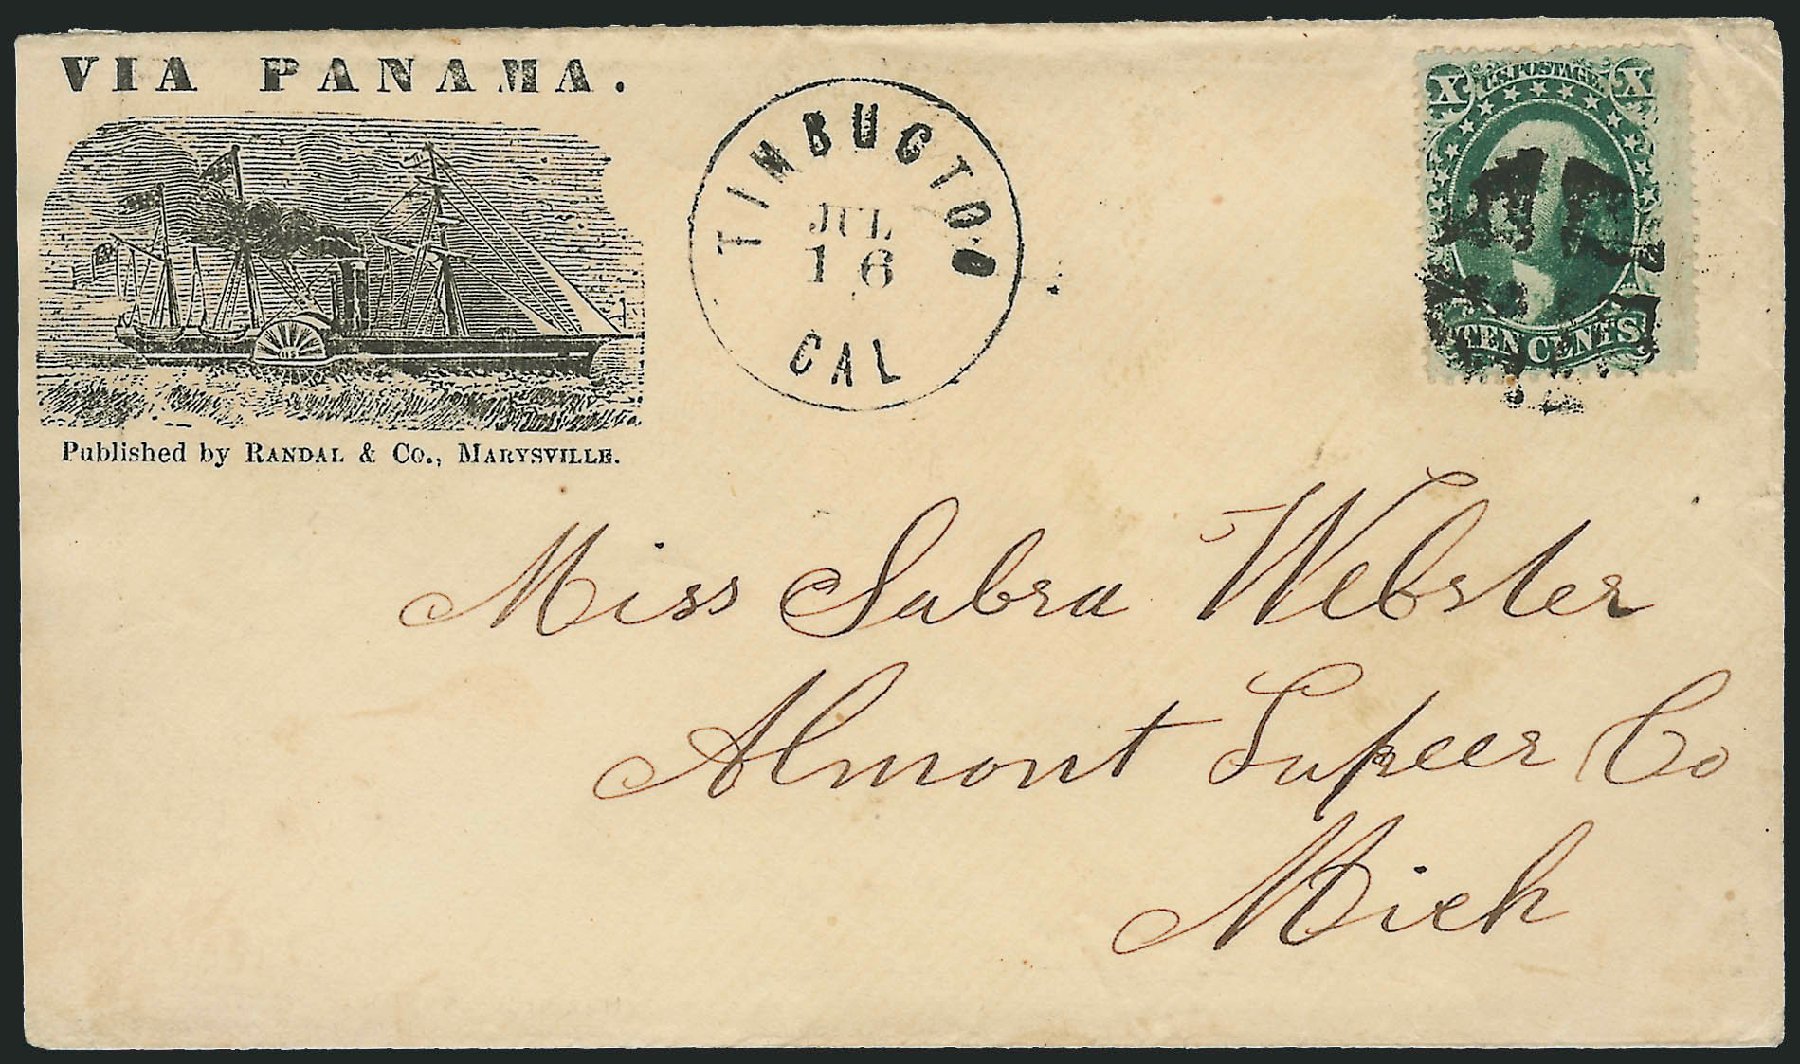 VIA PANAMA.
Published by RANDAL & Co., MARYSVILLE.
TIMBUCTOO
JUL
16
CAL
X U.S. POSTAGE X
TEN CENTS
Miss Sabra Webster
Almont Lapeer Co
Mich